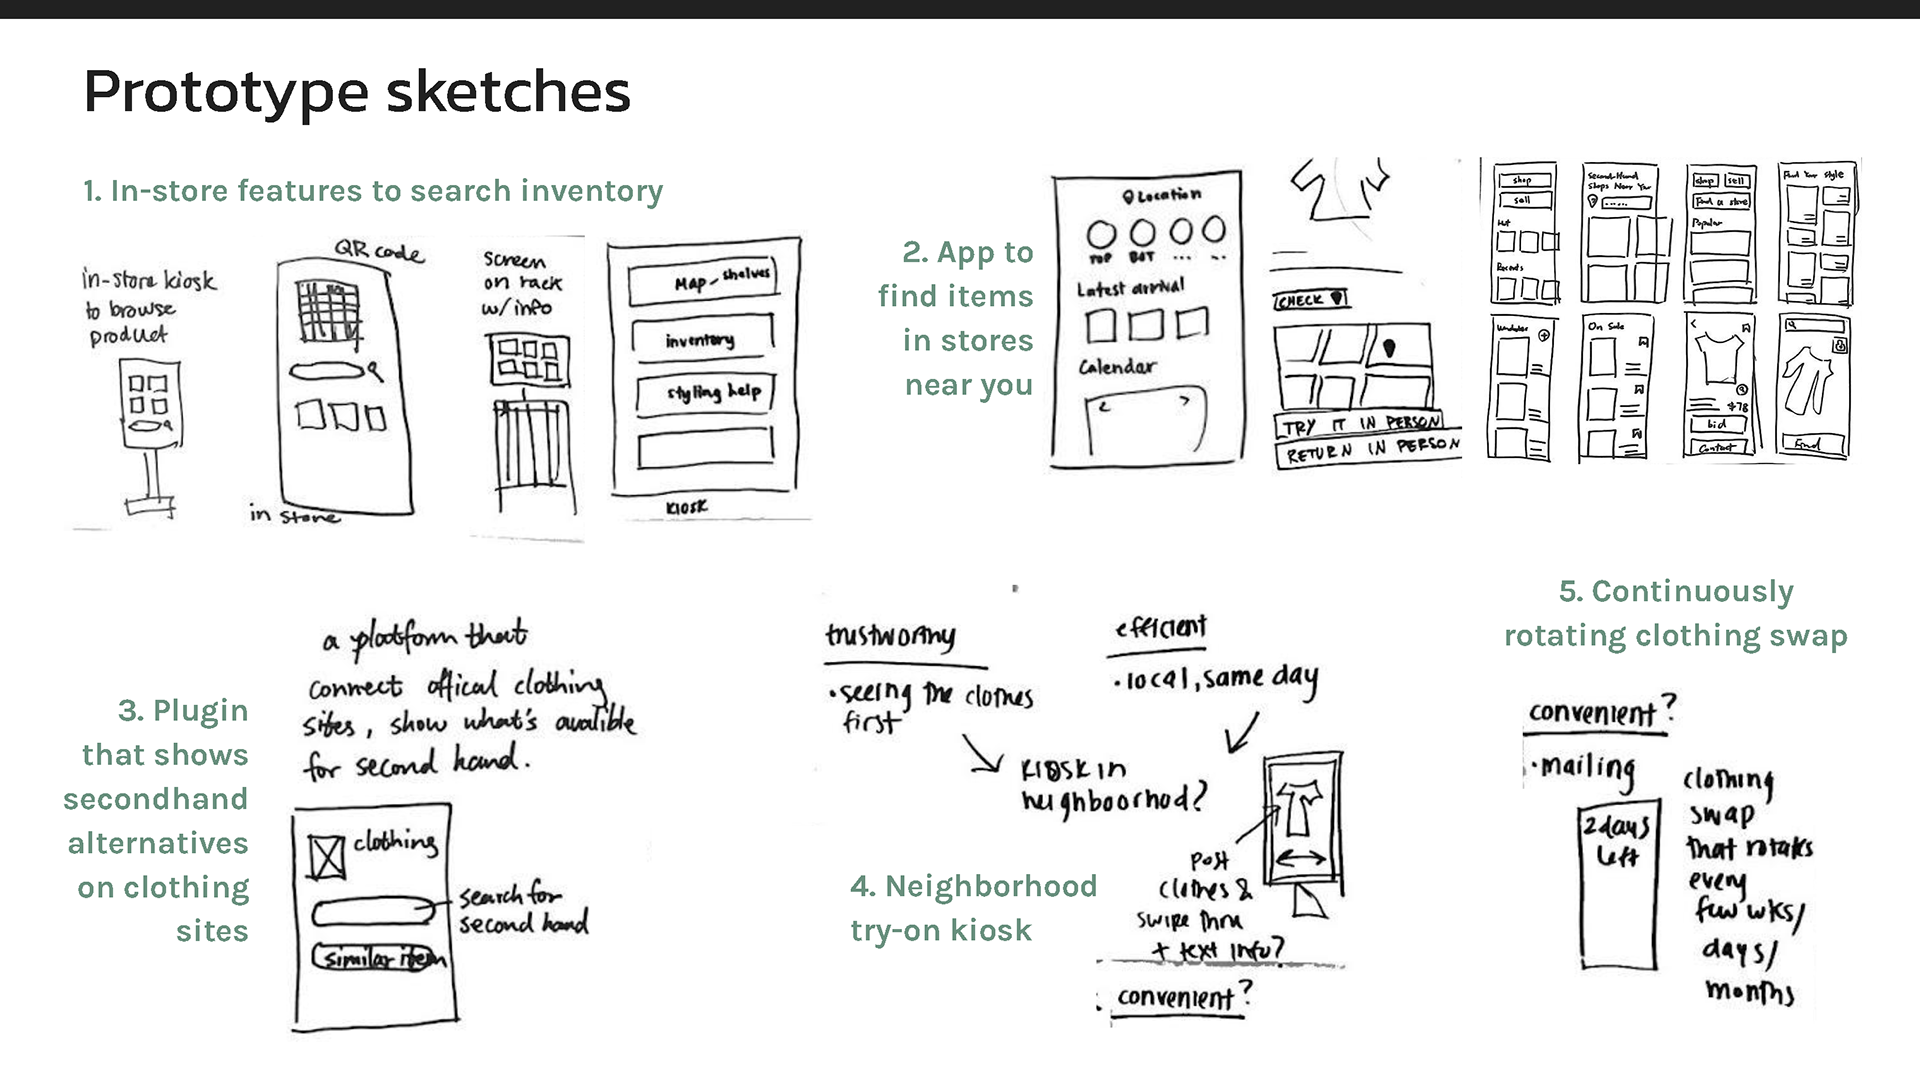 Prototype sketches
1. In-store features to search inventory
in-store kiosk
to browse
product
QR code
in store
screen
on rack
w/info
MAP - shelves
inventory
styling help
KIOSK
2. App to
find items
in stores
near you
Location
TOP BOT ... ..
Latest arrival
Calendar
CHECK
TRY IT IN PERSON
RETURN IN PERSON
shop
sell
Hot
Second-Hand
Shops Near You
shop sell
Find a store
Popular
Find Your Style
On Sale
$78
bid
Contact
Find
3. Plugin
that shows
secondhand
alternatives
on clothing
sites
a platform that
connect offical clothing
sites, show what's avalible
for second hand.
clothing
search for
second hand
similar item
trustworthy
• seeing the clothes
first
efficient
• local, same day
KIOSK in
neighboorhod?
post
clothes &
swipe thru
+ text info?
convenient?
4. Neighborhood
try-on kiosk
5. Continuously
rotating clothing swap
convenient?
• mailing
2 days
left
clothing
swap
that rotates
every
few wks/
days/
months